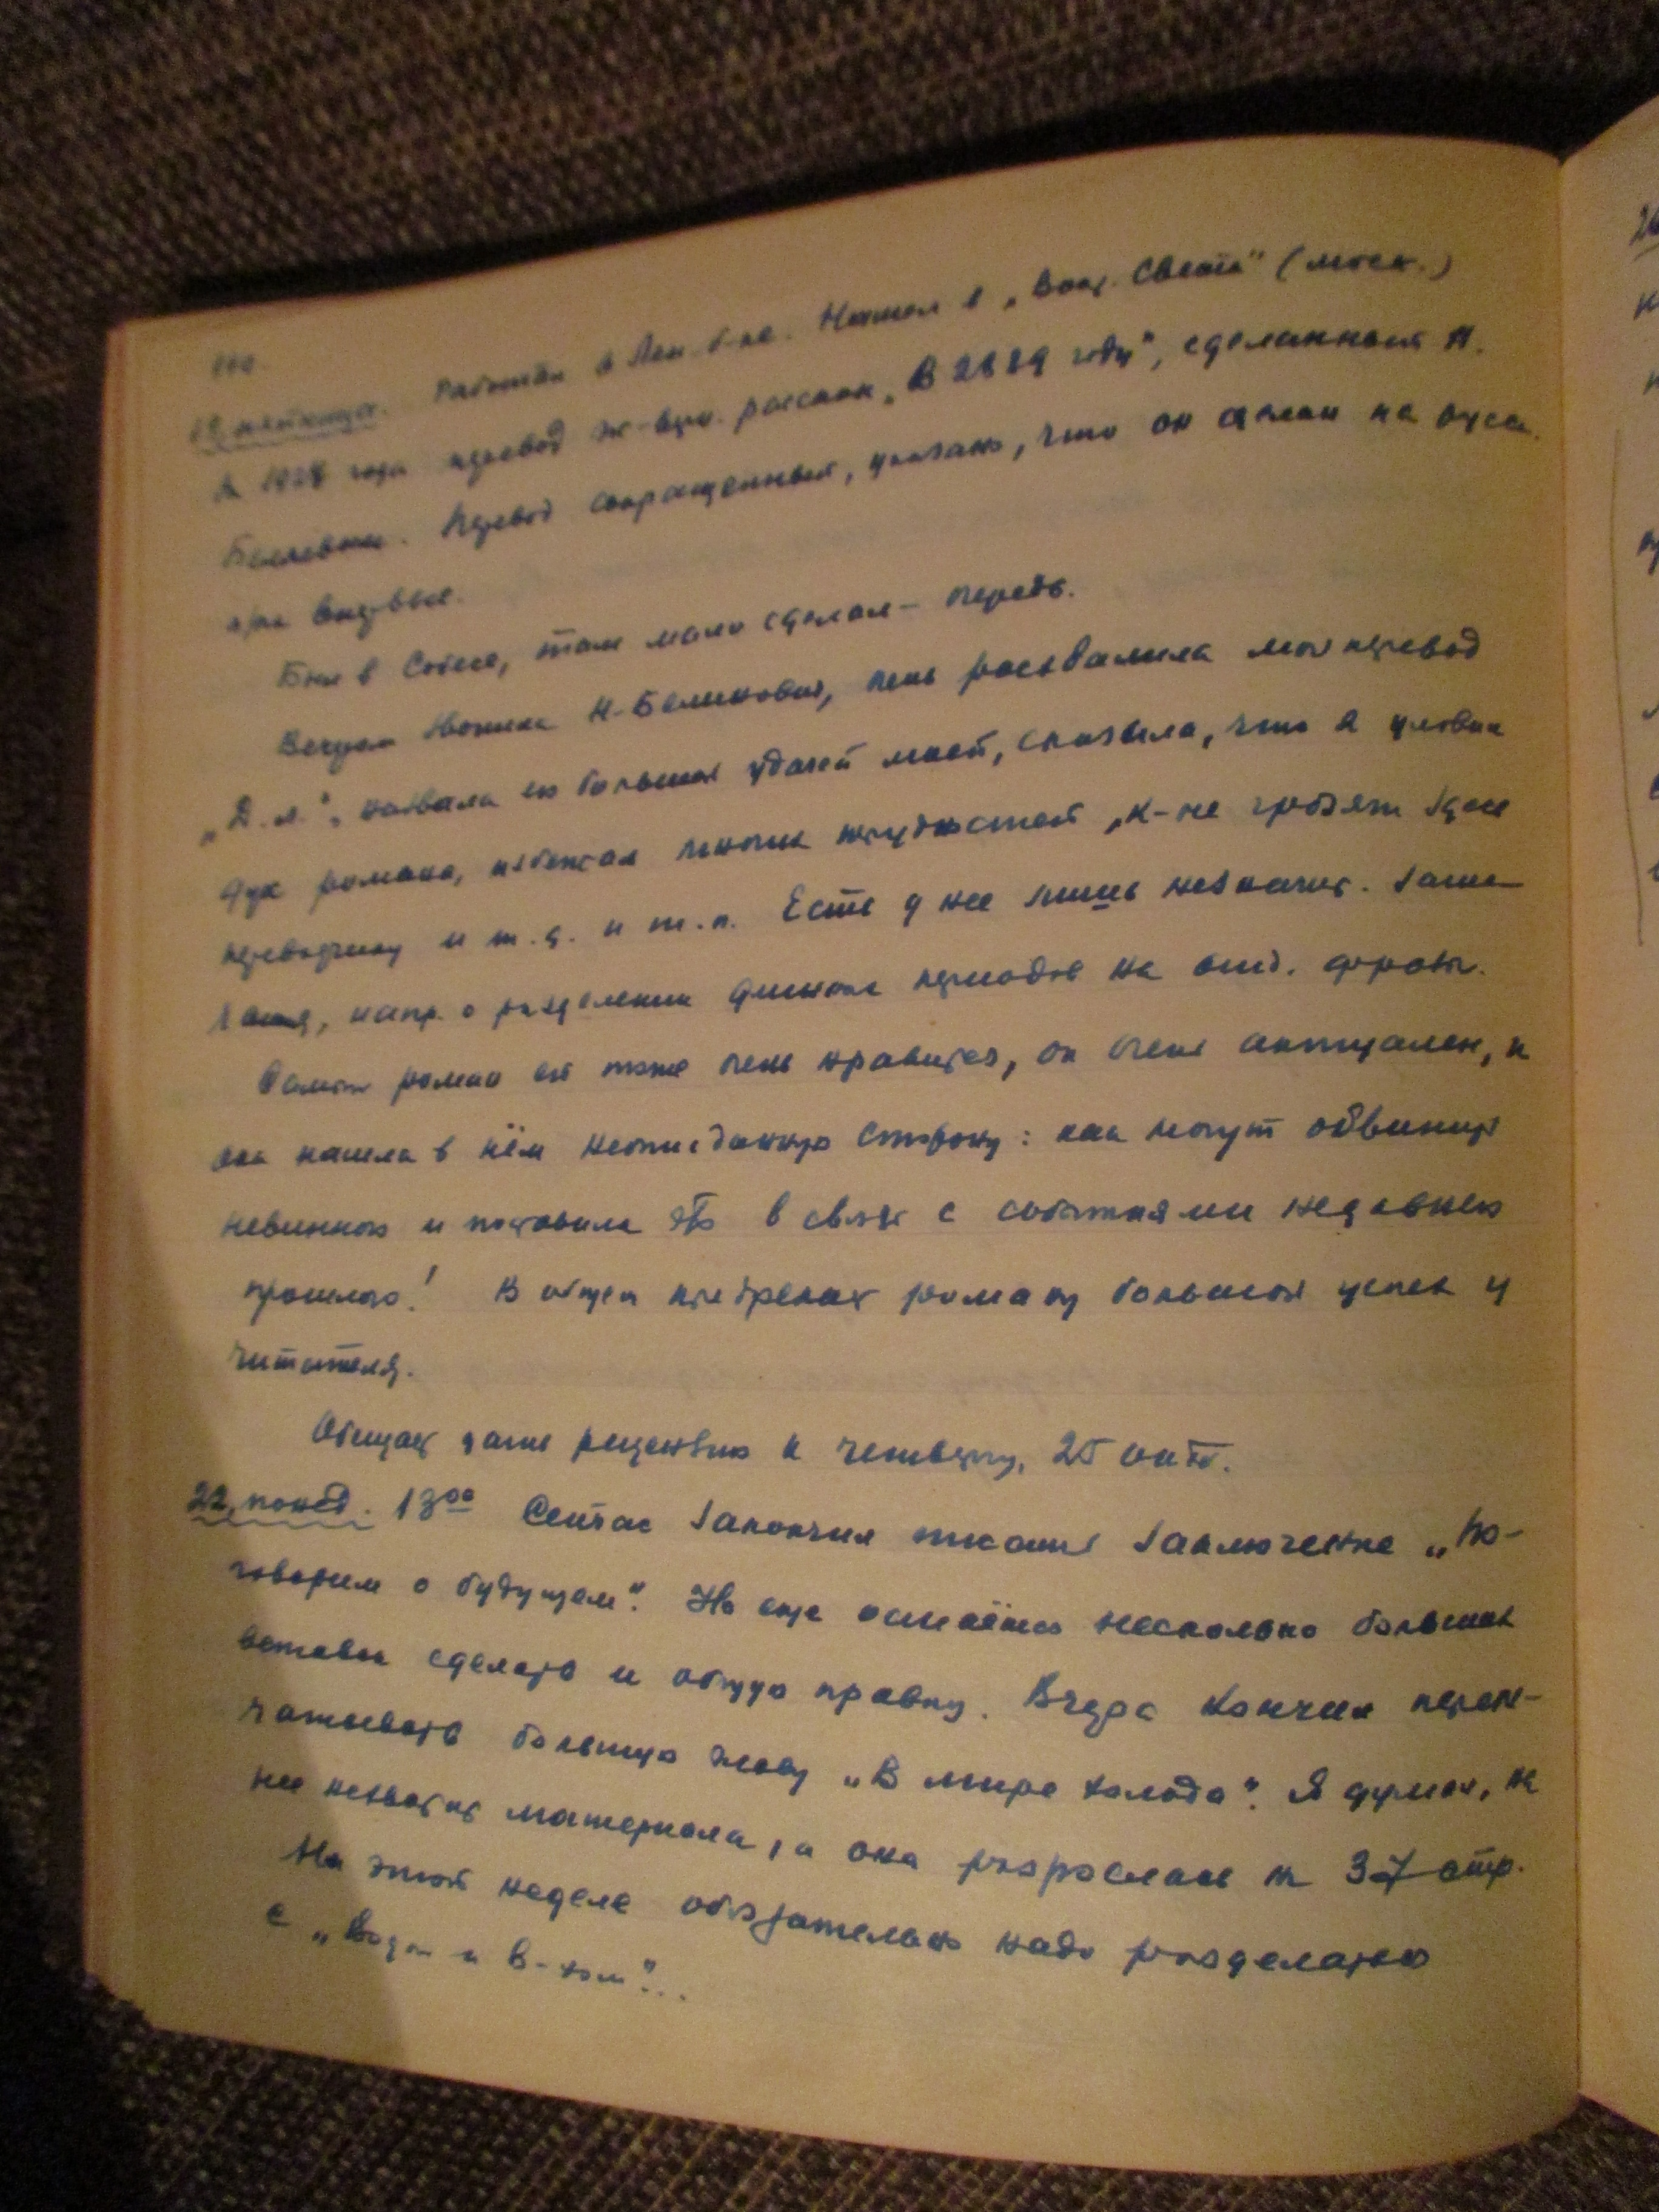 19 пятница. Работал в Лен. б-ке. Нашел в „Вокр. Света" (моск.)
за 1928 года перевод рассказ „В 2889 году", сделанный Н.
Перевод сокращенный, указано, что он дан на русск.
впервые.
Был в Собесе, там мало сделал – очередь.
Вечером звонила Н. Беликович, очень расхвалила мой перевод
„Д.л.", назвала его большой удачей моей, сказала, что я уловил
дух романа, избежал многих трудностей,
переводчику и т.д. и т.п. Есть у нее лишь незначит. заме-
чания, напр. о разделении длинных периодов на отд. фразы.
Самый роман ей тоже очень нравится, он очень актуален, и
она нашла в нём неожиданную сторону: как могут обвинить
невинного и поставила это в связь с событиями недавнего
прошлого! В общем предрекает роману большой успех у
читателя.
Обещает дать рецензию к четвергу, 25 окт.
22, понед. 13⁰⁰ Сейчас закончил писание заключение „По-
говорим о будущем". Но еще остаётся несколько больших
вставок сделать и общую правку. Вчера кончил перепе-
чатывать большую главу „В мире холода". Я думал, на
нее не хватит материала, а она разрослась на 37 стр.
На этой неделе обязательно надо разделаться
с „Водой и в-хом"...